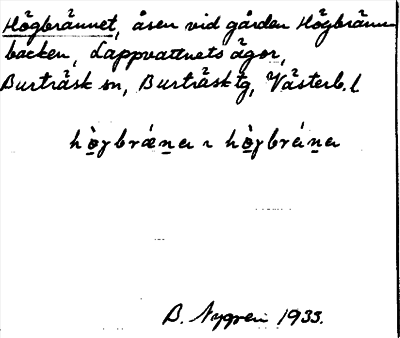 Högbrännet, åsen vid gården Högbränn-
backen, Lappvattnets ägor,
Burträsk sn, Burträsk tg, Västerb. l
hò̱gbrǽṉa ~ hò̱gbráṉa
B. Nygren 1935.